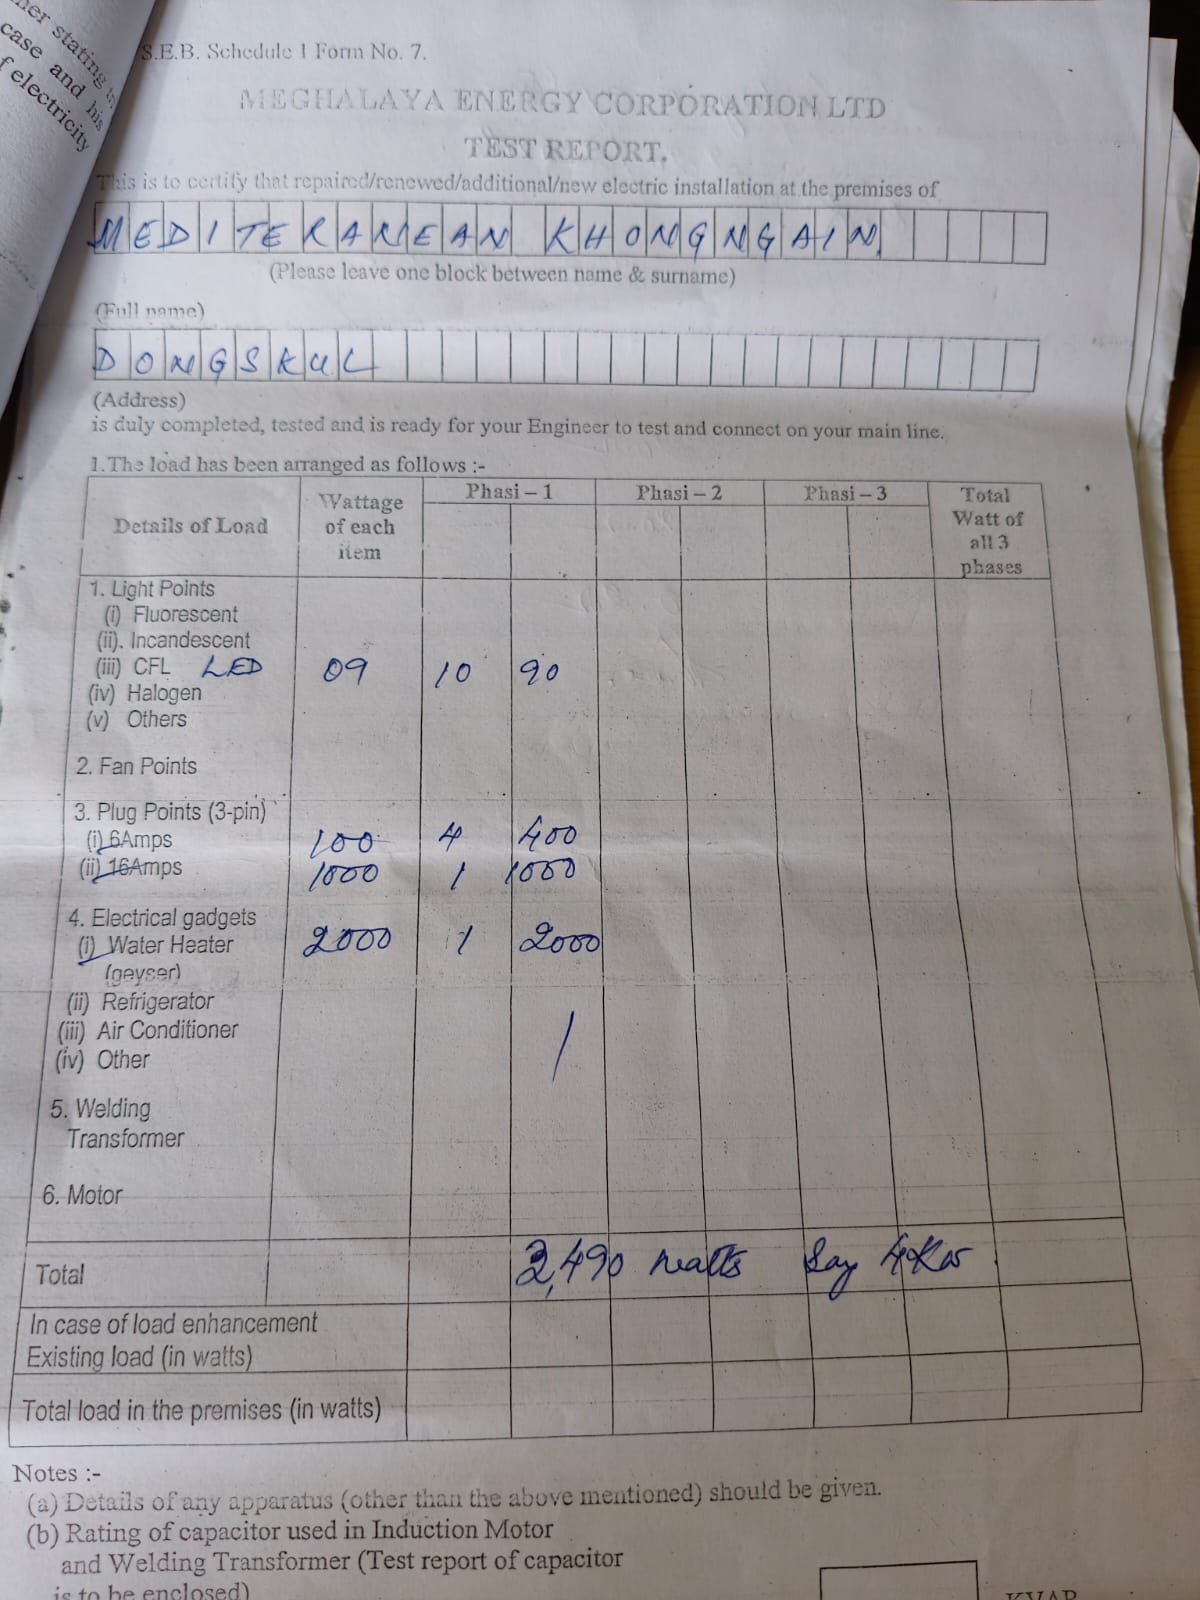 ner stating in
case and his
f electricity
S.E.B. Schedule I Form No. 7.
MEGHALAYA ENERGY CORPORATION LTD
TEST REPORT.
This is to certify that repaired/renewed/additional/new electric installation at the premises of
MEDITERANEAN KHONGNGAIN
(Please leave one block between name & surname)
(Full name)
DONGSKUL
(Address)
is duly completed, tested and is ready for your Engineer to test and connect on your main line.
1.The load has been arranged as follows :-
Details of Load Wattage of each item Phasi – 1 Phasi – 2 Phasi – 3 Total Watt of all 3 phases
1. Light Points
(i) Fluorescent
(ii). Incandescent
(iii) CFL LED 09 10 90
(iv) Halogen
(v) Others
2. Fan Points
3. Plug Points (3-pin)
(i) 6Amps 100 4 400
(ii) 16Amps 1000 1 1000
4. Electrical gadgets
(i) Water Heater 2000 1 2000
(geyser)
(ii) Refrigerator
(iii) Air Conditioner
(iv) Other
5. Welding
Transformer
6. Motor
Total 3,490 watts Say 4Kw.
In case of load enhancement
Existing load (in watts)
Total load in the premises (in watts)
Notes :-
(a) Details of any apparatus (other than the above mentioned) should be given.
(b) Rating of capacitor used in Induction Motor
and Welding Transformer (Test report of capacitor
is to be enclosed) KVAR